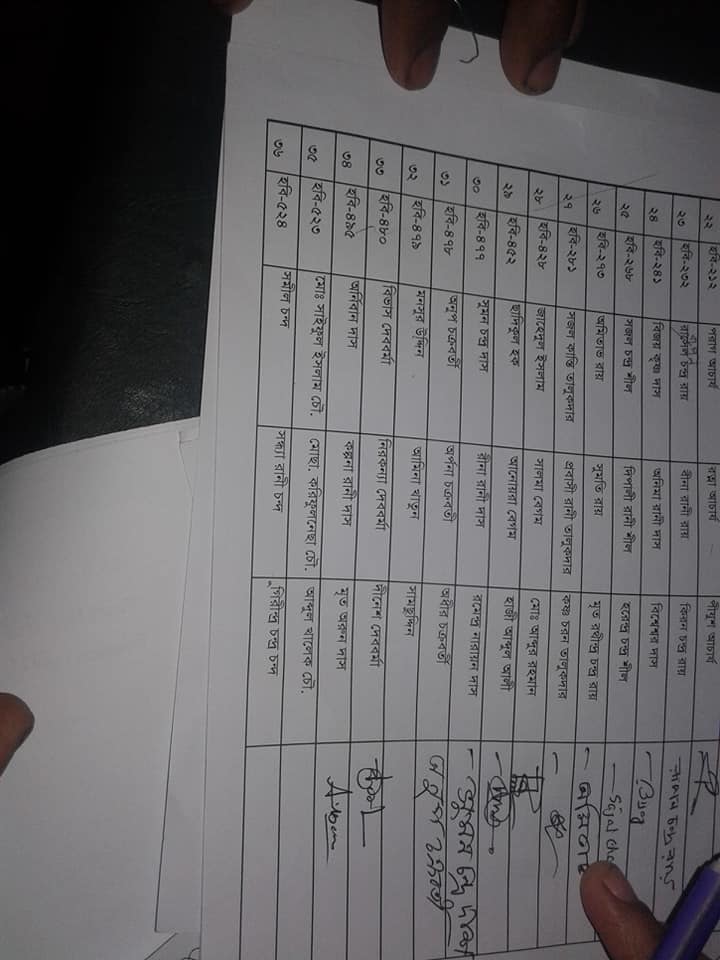 ২২ হবি-২১২ পরাণ আচার্য রত্না আচার্য পীযুশ আচার্য
২৩ হবি-২৩২ চন্দ্র রায় রীনা রানী রায় কিরন চন্দ্র রায়
২৪ হবি-২৪১ বিজয় কৃষ্ণ দাস অনিমা রানী দাস বিশ্বেশ্বর দাস
২৫ হবি-২৬৮ সজল চন্দ্র শীল দিপালী রানী শীল হরেন্দ্র চন্দ্র শীল
২৬ হবি-২৭৩ অমিতাভ রায় সুমতি রায় মৃত রথীন্দ্র চন্দ্র রায়
২৭ হবি-২৮১ সজল কান্তি তালুকদার প্রবাসী রানী তালুকদার কৃষ্ণ চরন তালুকদার
২৮ হবি-৪২৮ জাহেদুল ইসলাম সালমা বেগম মোঃ আব্দুর রহমান
২৯ হবি-৪৫২ ছাদিকুল হক আনোয়রা বেগম হাজী আব্দুল আলী
৩০ হবি-৪৭৭ সুমন চন্দ্র দাস রীনা রানী দাস রমেন্দ্র নারায়ন দাস
৩১ হবি-৪৭৮ অনুপ চক্রবর্তী অর্পনা চক্রবর্তী অধীর চক্রবর্তী
৩২ হবি-৪৭৯ মনসুর উদ্দিন আমিনা খাতুন সামছুদ্দিন
৩৩ হবি-৪৮০ বিভাস দেববর্মা নিরকন্যা দেববর্মা দীনেশ দেববর্মা
৩৪ হবি-৪৯৫ অর্নিবান দাস কল্পনা রানী দাস মৃত অরুন দাস
৩৫ হবি-৫২৩ মোঃ সাইফুল ইসলাম চৌ. মোছা. করিফুলনেছা চৌ. আব্দুল খালেক চৌ.
৩৬ হবি-৫২৪ সমীল চন্দ সন্ধ্যা রানী চন্দ গিরীন্দ্র চন্দ্র চন্দ